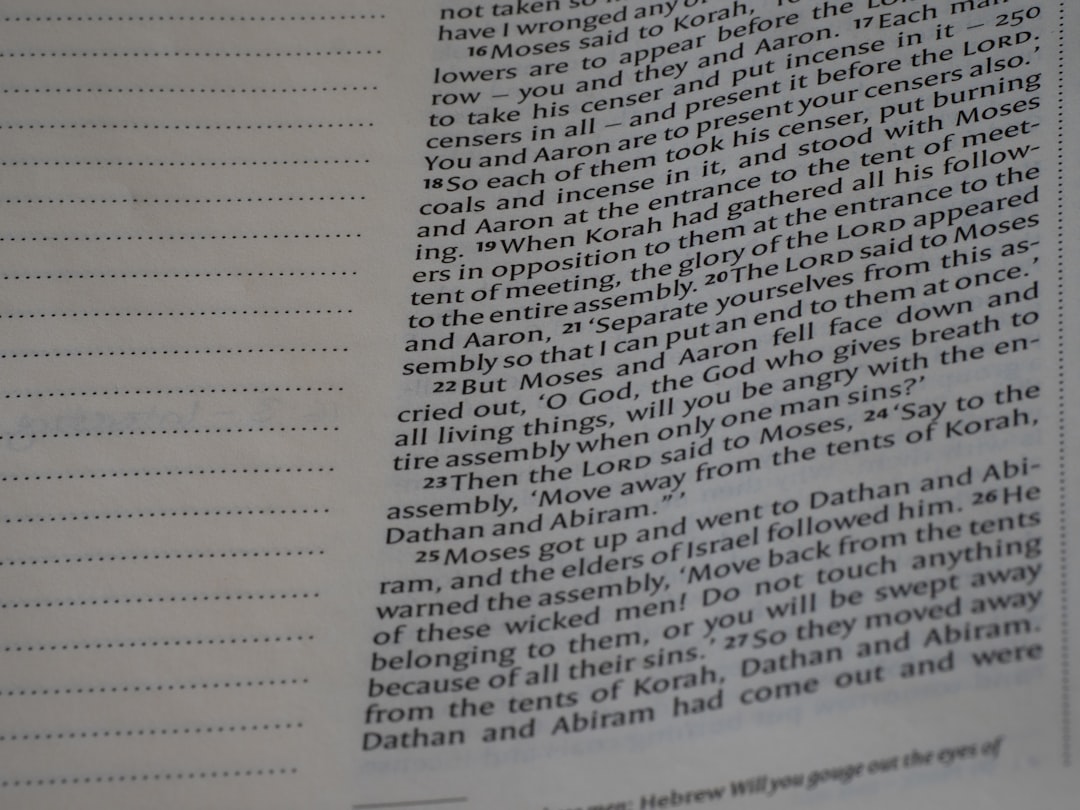 not taken so
have I wronged any of
16 Moses said to Korah,
lowers are to appear before the
row – you and they and Aaron. 17 Each man
to take his censer and put incense in it – 250
censers in all – and present it before the LORD.
You and Aaron are to present your censers also.’
18 So each of them took his censer, put burning
coals and incense in it, and stood with Moses
and Aaron at the entrance to the tent of meet-
ing. 19 When Korah had gathered all his follow-
ers in opposition to them at the entrance to the
tent of meeting, the glory of the LORD appeared
to the entire assembly. 20 The LORD said to Moses
and Aaron, 21 ‘Separate yourselves from this as-
sembly so that I can put an end to them at once.’
22 But Moses and Aaron fell face down and
cried out, ‘O God, the God who gives breath to
all living things, will you be angry with the en-
tire assembly when only one man sins?’
23 Then the LORD said to Moses, 24 ‘Say to the
assembly, ‘Move away from the tents of Korah,
Dathan and Abiram.”’
25 Moses got up and went to Dathan and Abi-
ram, and the elders of Israel followed him. 26 He
warned the assembly, ‘Move back from the tents
of these wicked men! Do not touch anything
belonging to them, or you will be swept away
because of all their sins.’ 27 So they moved away
from the tents of Korah, Dathan and Abiram.
Dathan and Abiram had come out and were
men: Hebrew Will you gouge out the eyes of